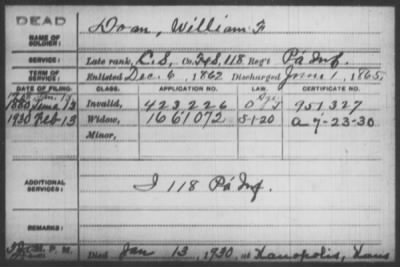 DEAD
NAME OF SOLDIER:
Doan, William F
SERVICE:
Late rank, C.S, Co. F&S, 118 Reg't Pa Inf.
TERM OF SERVICE:
Enlisted Dec. 6, 1862 Discharged June 1, 1865,
DATE OF FILING. CLASS. APPLICATION NO. LAW. CERTIFICATE NO.
1880 June 13 Invalid, 423226 951327
1930 Feb-13 Widow, 1661072 5-1-20 A-7-23-30
Minor,
ADDITIONAL SERVICES:
I 118 Pa Inf.
REMARKS:
Died Jan 13, 1930, at Kanopolis, Kans